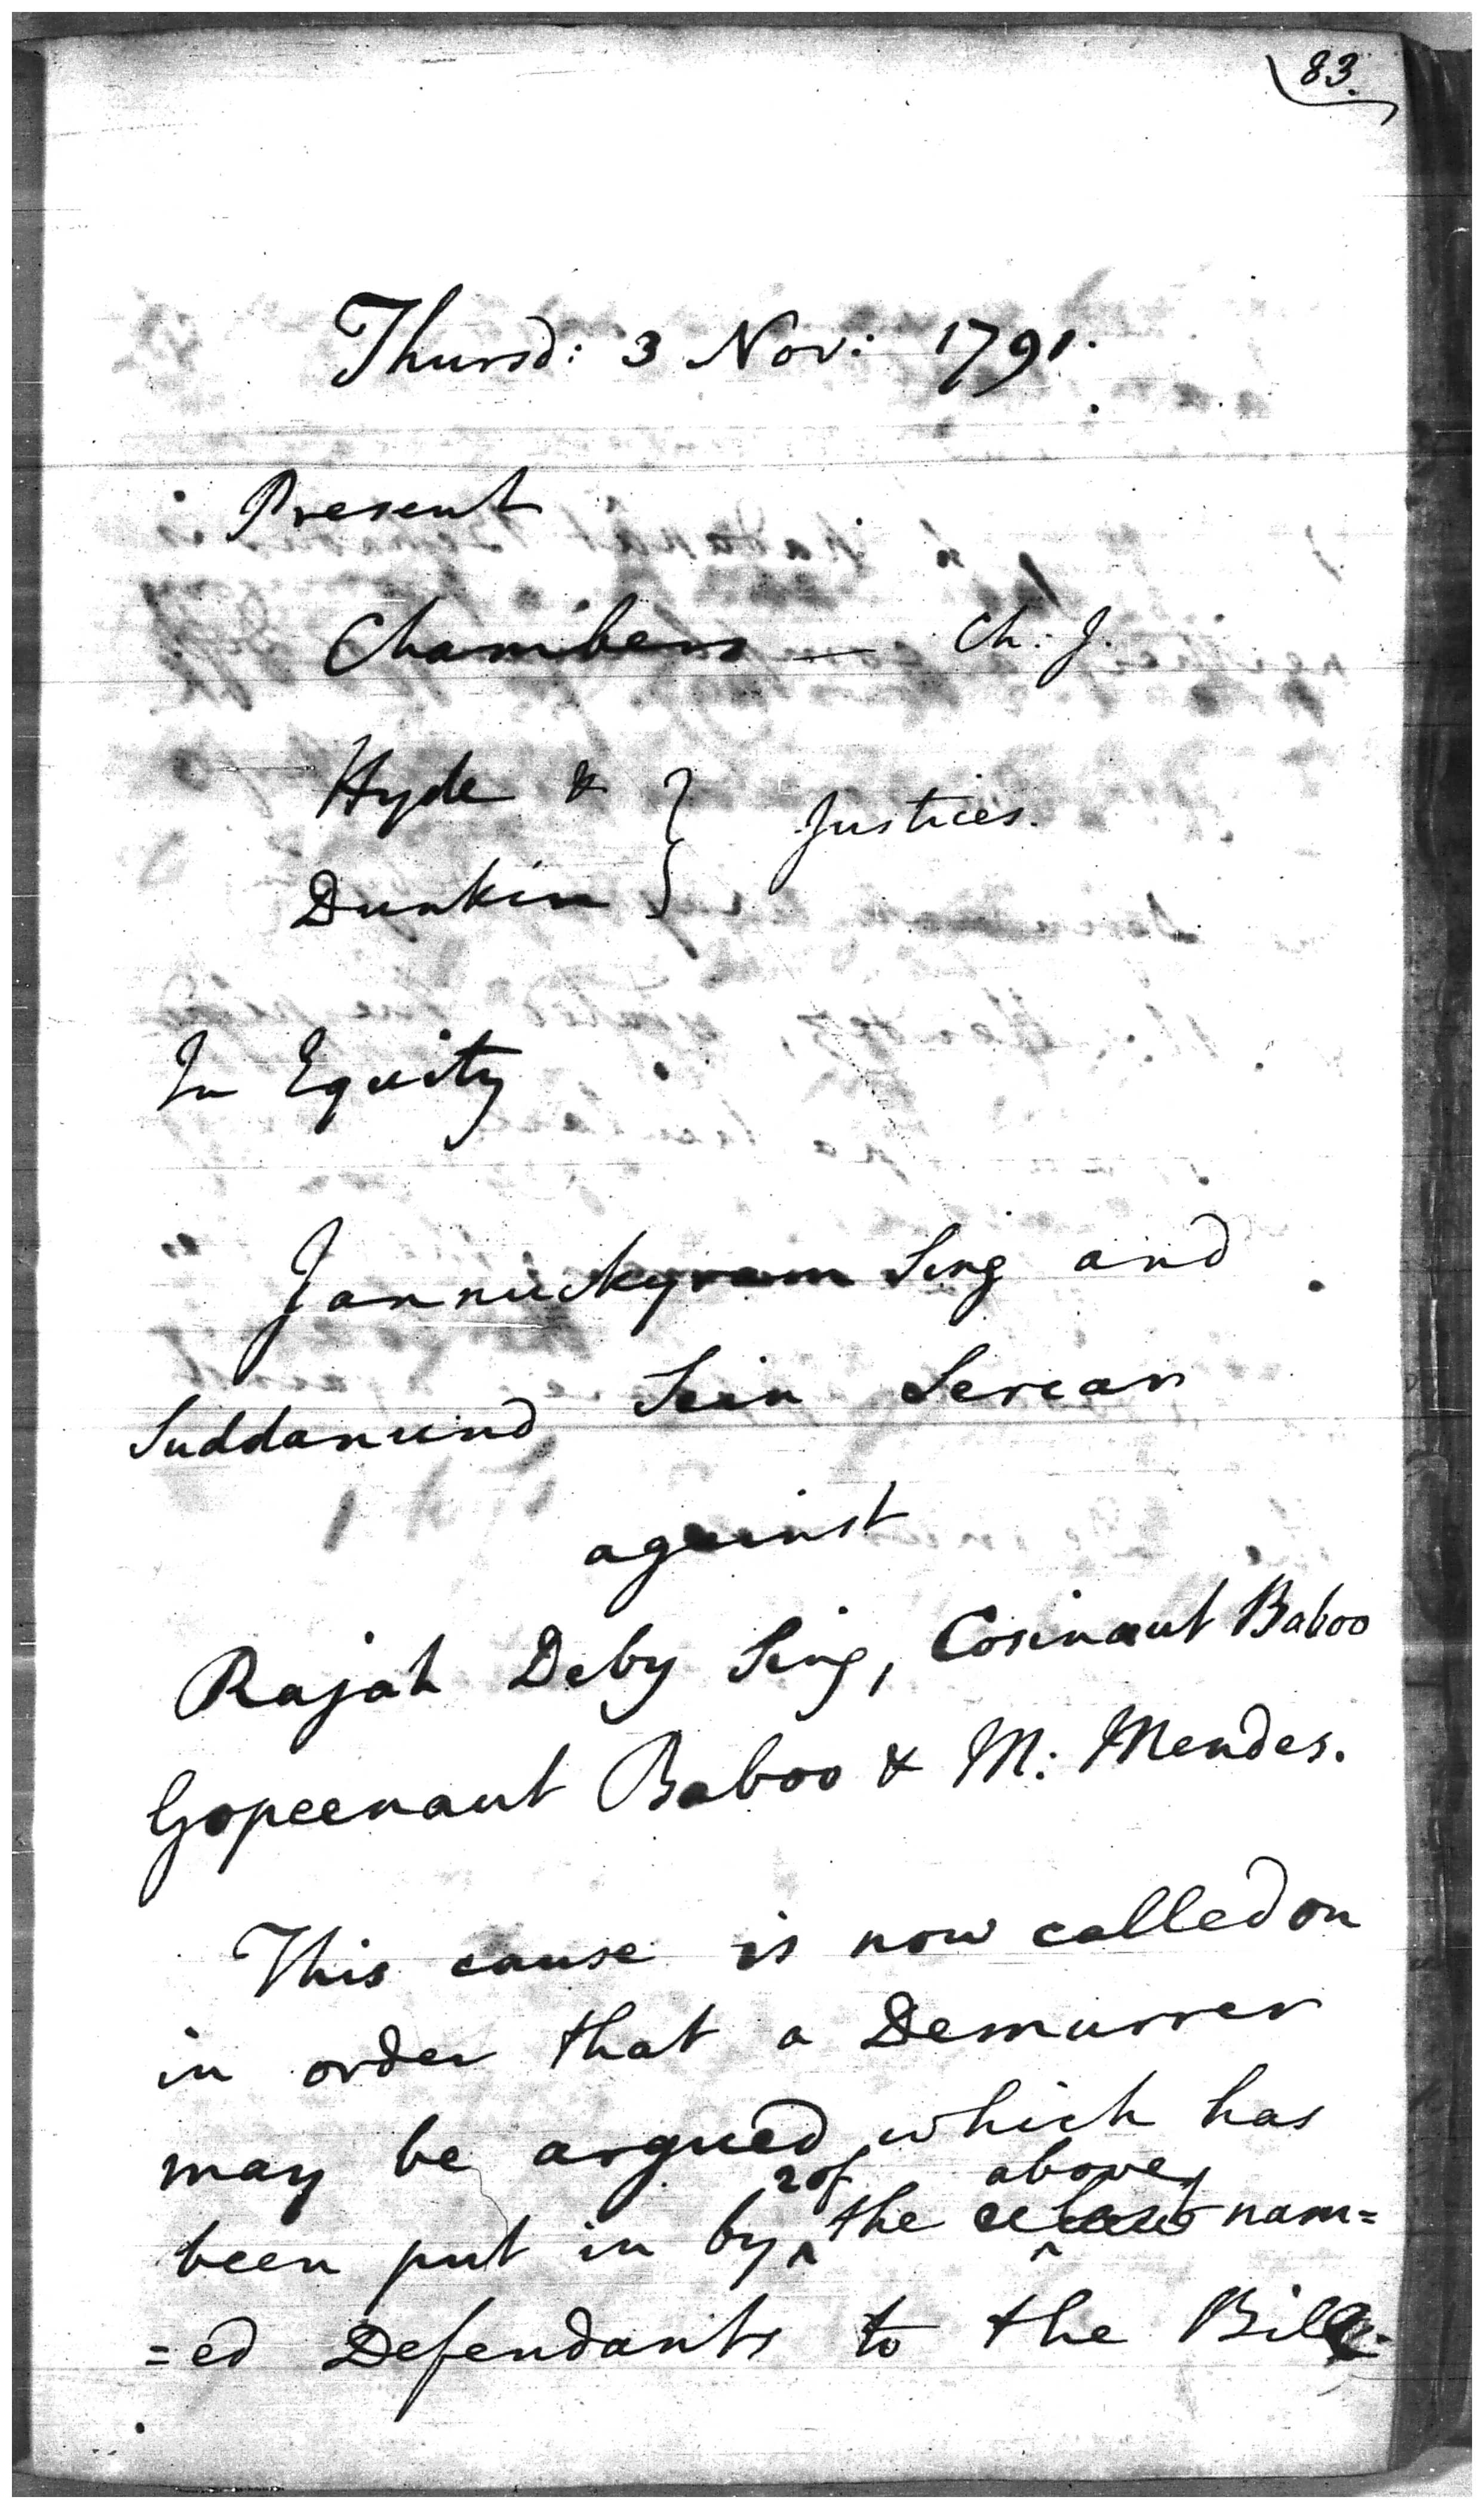 83.
Thursd: 3 Nov: 1791.
Present
Chambers — Ch: J.
Hyde &
Justices.
Dunkin
In Equity
Jannuckyram Sing and
Suddanund Sein Sercar
against
Rajah Deby Sing, Cosinaut Baboo
Gopeenaut Baboo & M: Mendes.
This cause is now called on
in order that a Demurrer
may be argued which has
2 of above
been put in by the nam=
=ed Defendants to the Bill